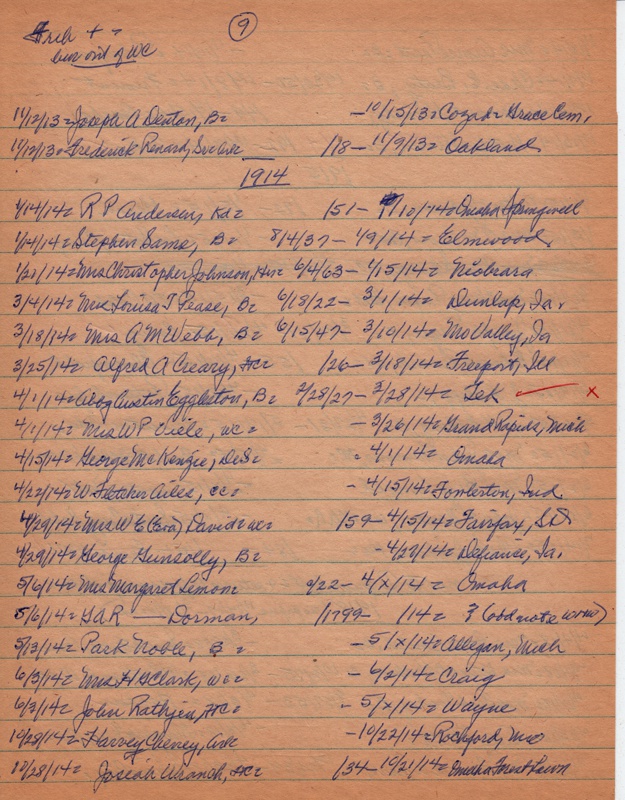 9
bur out of WC
11/12/13= Joseph A Denton, B= -10/15/13= Cozad= Grace Cem.
11/12/13= Frederick Renard, 1/18- 11/9/13= Oakland
1914
1/14/14= R P Andersen, Kd= 151- 10/14= Omaha Springwell
1/14/14= Stephen Same, B= 8/4/37- 1/9/14= Elmwood
1/21/14= Mrs Christopher Johnson, 6/4/63- 1/15/14= Niobrara
3/4/14= Mrs Louisa T Pease, B= 6/18/22- 3/1/14= Dunlap, Ia.
3/18/14= Mrs A M Webb, B= 6/15/47- 3/10/14= Mo Valley, Ia
3/25/14= Alfred A Creary, HC= /26- 3/18/14= Freeport, Ill
4/1/14= Austin Eggleston, B= 2/28/27- 3/28/14= Tek x
4/1/14= Mrs W P Viele, WC= -3/26/14= Grand Rapids, Mich
4/15/14= George McKenzie, DeS= = 4/1/14= Omaha
4/22/14= W Fletcher Ailes, CC= -4/15/14= Ind
4/29/14= Mrs W E (Eva) David= WC= /59- 4/15/14= Fairfax, SD
4/29/14= George Gunsolly, B= -4/27/14= Defiance, Ia.
5/6/14= Mrs Margaret Lemon= 9/22- 4/x/14= Omaha
5/6/14= GAR — Dorman, /1799- /14= ? (odd note
5/13/14= Park Noble, B= -5/x/14= Allegan, Mich
6/3/14= Mrs H G Clark, WC= -6/2/14= Craig
6/3/14= John Rathjen, HC= -5/x/14= Wayne
10/28/14= Harvey Cheney, -10/22/14= Rockford,
10/28/14= Josiah Wranch, HC= /34- 10/21/14= Omaha Forest Lawn